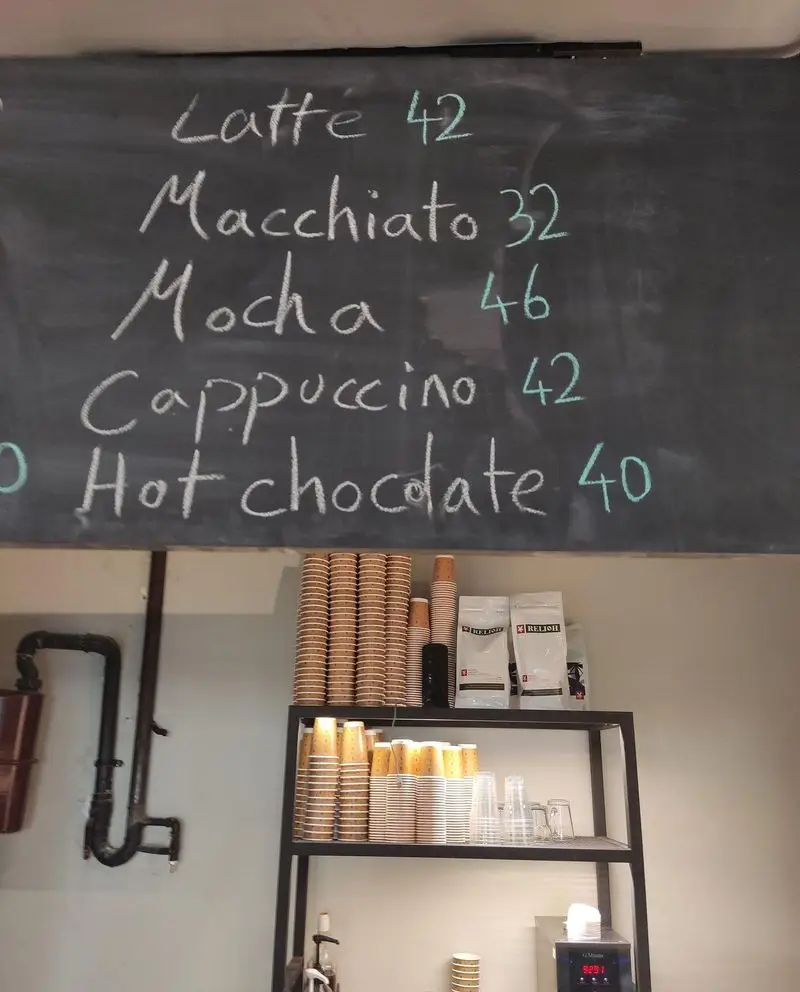 Latte 42
Macchiato 32
Mocha 46
Cappuccino 42
Hot chocolate 40
0
RELIOH RELIOH